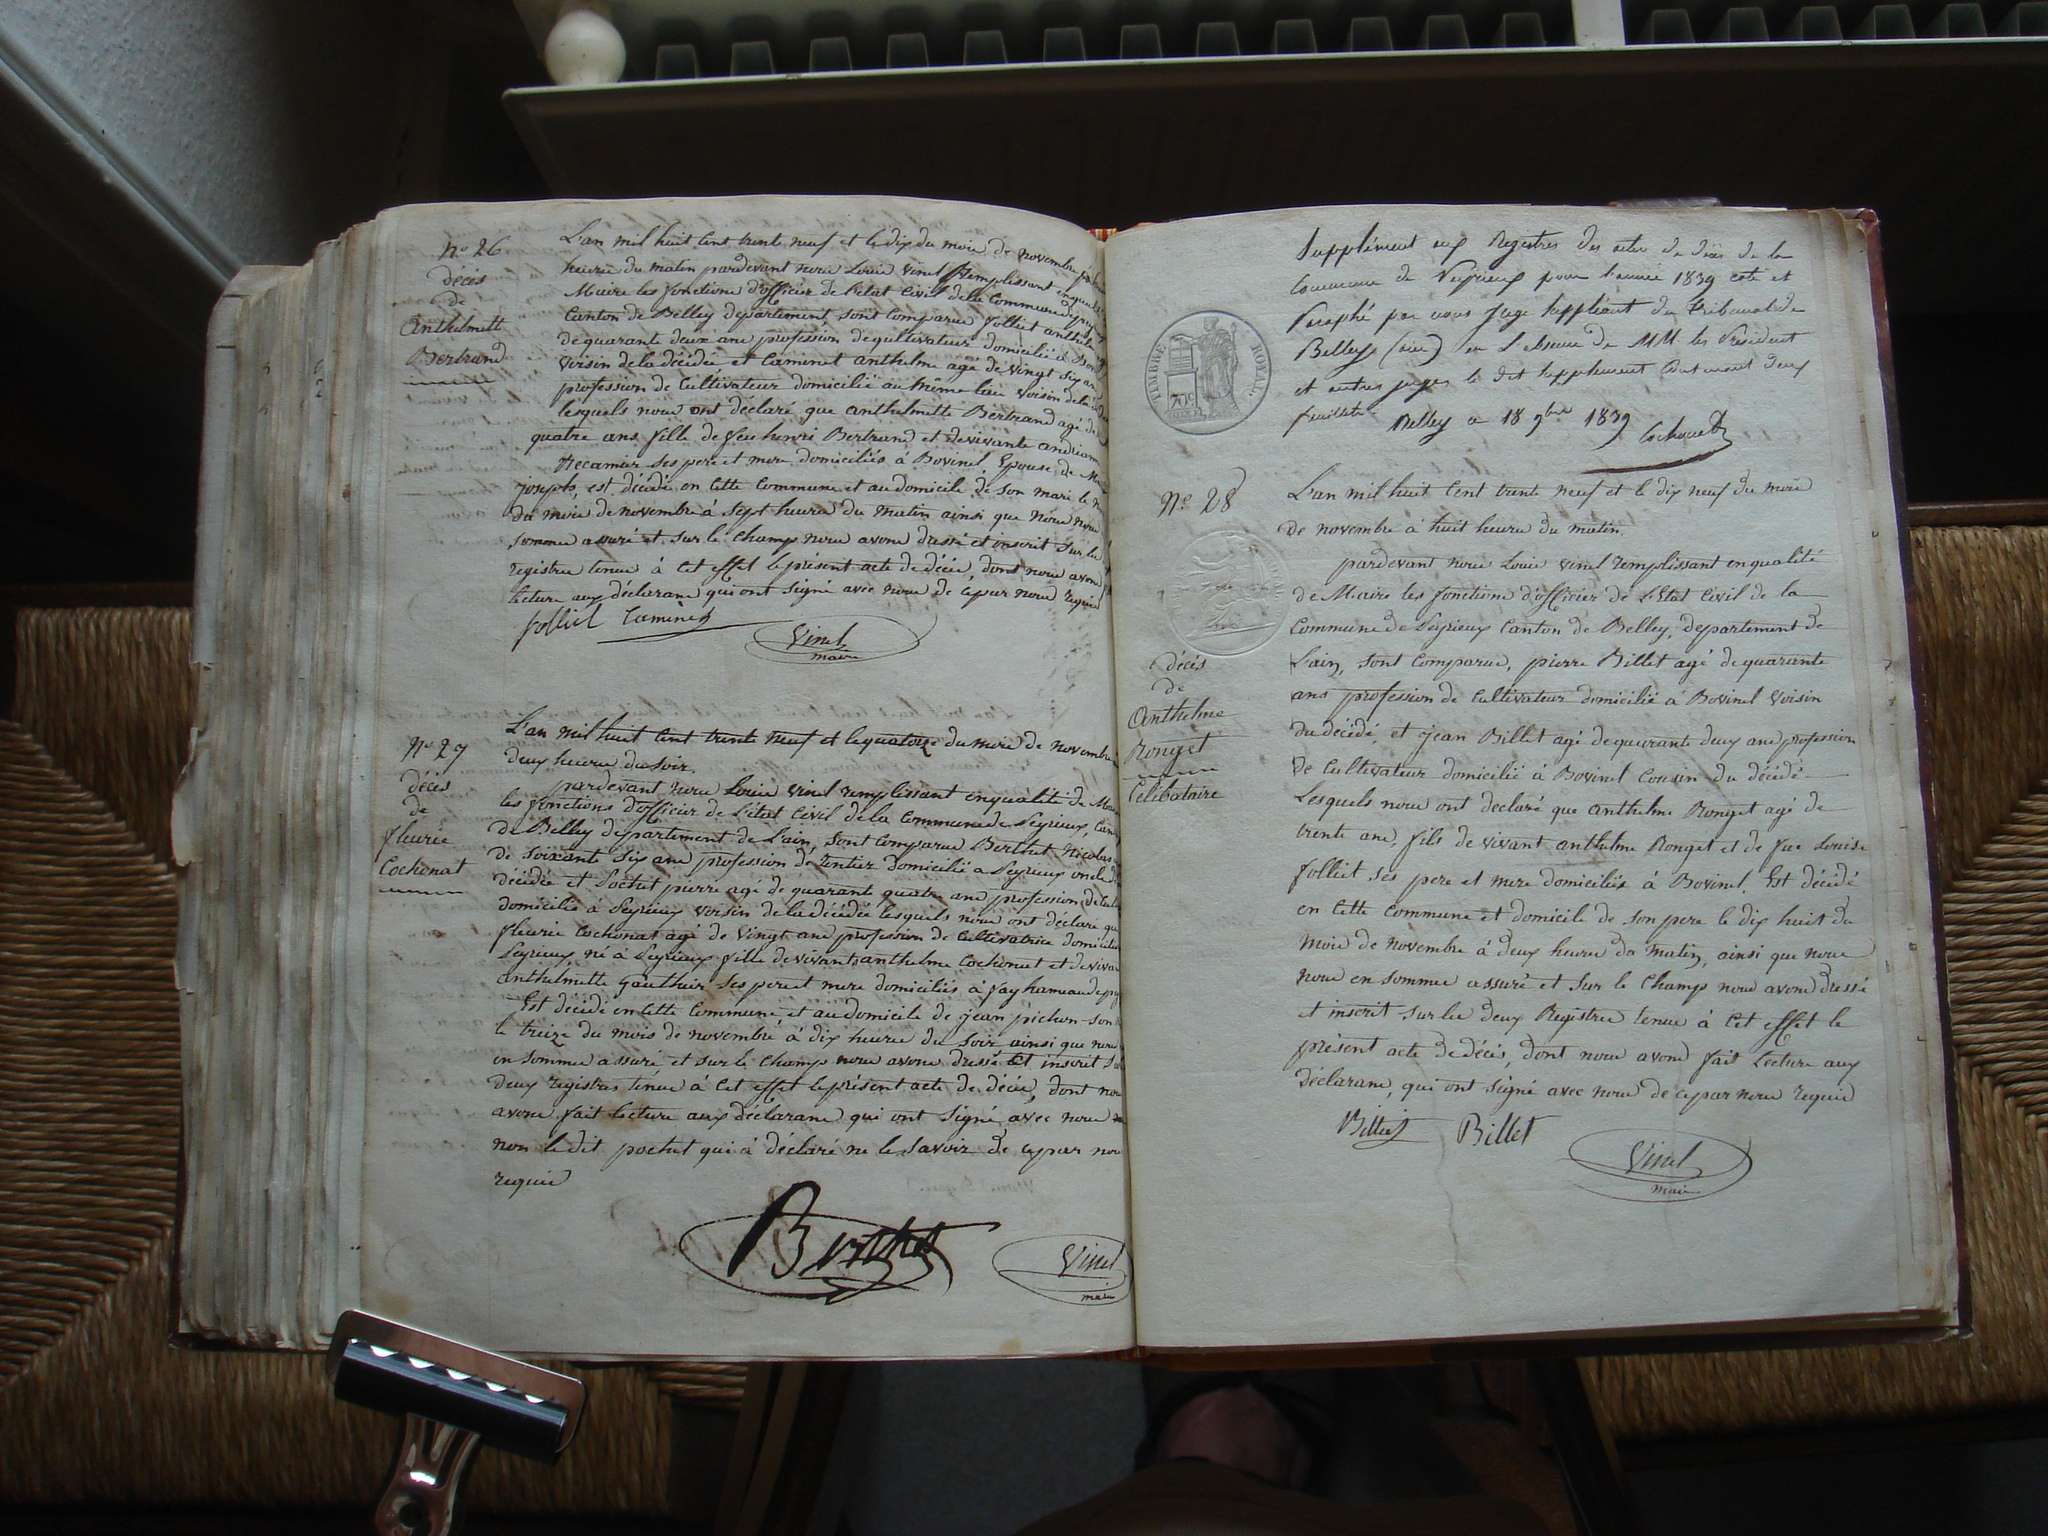 N° 26
décès
de
Anthelmette
Bertrand
L'an mil huit cent trente neuf et le dix du mois de novembre
heures du matin pardevant nous Louis Vinel Remplissant en qualité
Maire les fonctions d'officier de l'état Civil de la Commune de
Canton de Belley departement, sont Comparus folliet anthelme
de quarante deux ans profession de cultivateur domicilié à
voisin de la décédée, et Caminet anthelme agé de vingt six ans
profession de Cultivateur domicilié au même lieu voisin de la
lesquels nous ont déclaré que anthelmette Bertrand agé de
quatre ans fille de feu henri Bertrand et de vivante andrianne
Recamier ses pere et mere domiciliés à Bovinel, Epouse, de
Joseph, est décédé en cette Commune et au domicile de son mari le
du mois de novembre à sept heures du matin ainsi que nous nous
sommes assuré et sur le champs nous avons dressé et inscrit sur les
registres tenus à cet effet le présent acte de décès, dont nous avons
lecture aux déclarans qui ont signé avec nous de ce par nous requis
folliet Caminet
Vinel
maire
N° 27
décès
de
fleurie
Cochonat
L'an mil huit cent trente neuf et le quatorze du mois de novembre
deux heures du soir.
pardevant nous Louis Vinel remplissant en qualité de
les fonctions d'officier de l'état Civil de la Commune de Peyrieux,
de Belley departement de l'ain, sont Comparus Berthet Nicolas
de soixante six ans profession de rentier domicilié à Peyrieux oncle de
décédée et Pochet pierre agé de quarante quatre ans profession de
domicilié à Peyrieux voisin de la décédée lesquels nous ont déclaré que
fleurie Cochonat agé de vingt ans profession de Cultivatrice domiciliée
Peyrieux, né à Peyrieux fille de vivants anthelme Cochonat et de vivante
anthelmette Gauthier ses pere et mere domiciliés à fay hameau de
Est décédé en cette Commune et au domicile de jean pichon son
le treize du mois de novembre à dix heures du soir ainsi que nous
en sommes assuré, et sur le champs nous avons dressé et inscrit
deux registres tenus à cet effet le présent acte de décès, dont nous
avons fait lecture aux déclarans qui ont signé avec nous
non le dit pochet qui à déclaré ne le savoir de ce par nous
requis
Berthet
Vinel
maire
Supplément aux Registres des actes de décès de la
Commune de Peyrieux pour l'année 1839 coté et
Paraphé par nous Juge suppléant du Tribunal de
Belley (ain) en l'absence de MM les Président
et autres juges le dit supplément contenant deux
feuillets
Belley ce 18 9bre 1839
TIMBRE ROYAL
70c
N° 28
décès
de
Anthelme
Ronget
Celibataire
L'an mil huit cent trente neuf et le dix neuf du mois
de novembre à huit heures du matin.
pardevant nous Louis Vinel remplissant en qualité
de Maire les fonctions d'officier de l'Etat Civil de la
Commune de Peyrieux Canton de Belley, departement de
L'ain, sont Comparus, pierre Billet agé de quarante
ans profession de cultivateur domicilié à Bovinel voisin
du décédé, et jean Billet agé de quarante deux ans profession
de Cultivateur domicilié à Bovinel Cousin du décédé
Lesquels nous ont declaré que anthelme Ronget agé de
trente ans, fils de vivant anthelme Ronget et de feue Louise
folliet ses pere et mere domiciliés à Bovinel. Est décédé
en cette Commune et domicile de son pere le dix huit du
mois de novembre à deux heures du matin, ainsi que nous
nous en sommes assuré et sur le champs nous avons dressé
et inscrit sur les deux Registres tenus à cet effet le
présent acte de décès, dont nous avons fait Lecture aux
déclarans, qui ont signé avec nous de ce par nous requis
Billet Billet
Vinel
maire